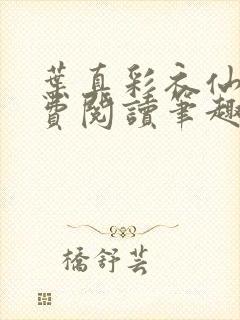 葉真彩衣仙
費閱讀筆趣
橋舒芸